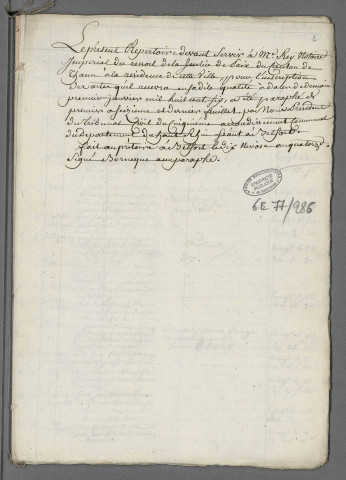 2
Le présent Repertoire devant Servir à Me. Rey Notaire
Imperial du ressort de la Justice de Paix du Canton de
thann à la résidence de cette Ville, pour l'inscription
des actes qu'il recevra en sadite qualité à dater de demain
premier Janvier mil huit cent six, a été paraphé des
premier a sixième et dernier feuillet, par Nous Président
du Tribunal Civil du Cinquième arrondissement Communal
du departement du haut Rhin séant à Belfort.
fait au prétoire à Belfort le dix Nivose an quatorze.
Signé Borneque avec paraphe.
6E 77/986